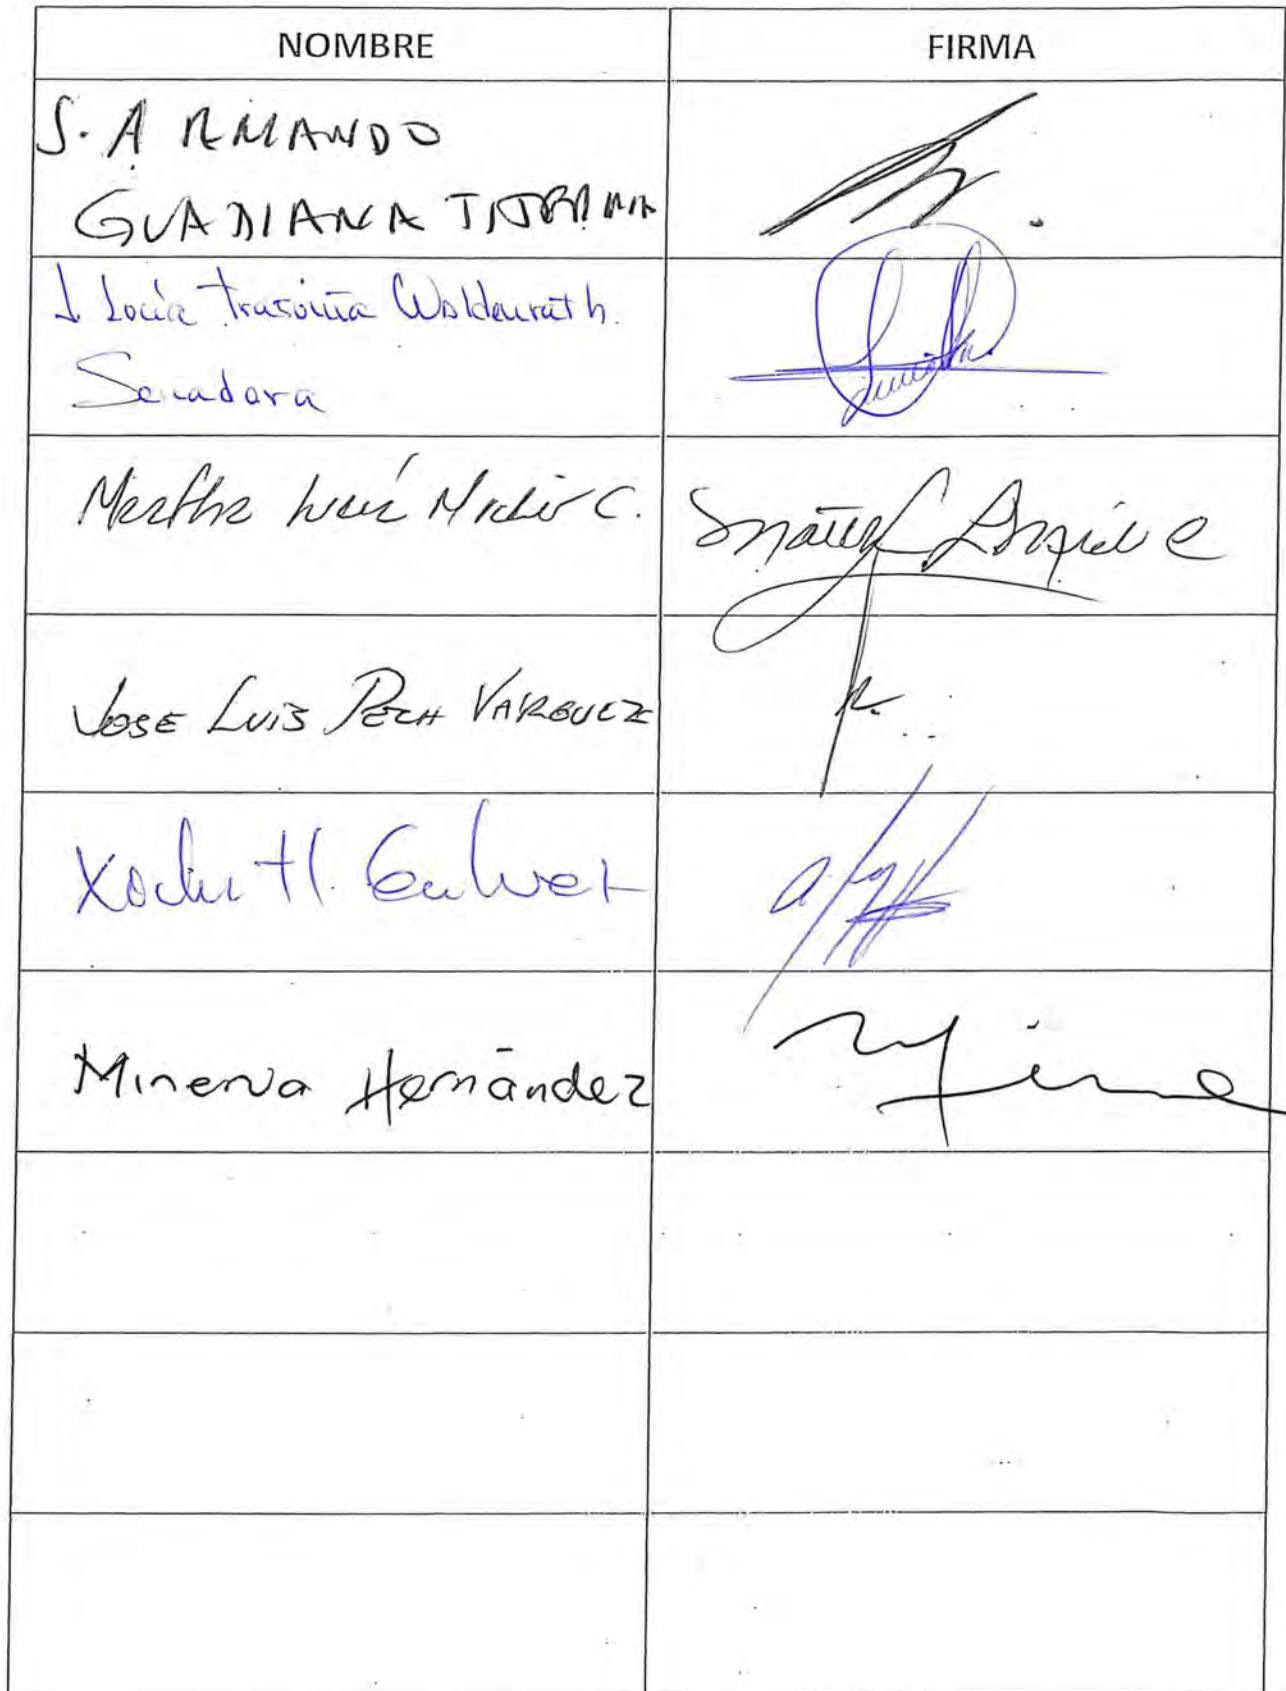 NOMBRE FIRMA
S. ARMANDO
GUADIANA TIJERINA
J. Lucía Trasviña Waldenrath.
Senadora
Martha Lucía Micher C.
JOSE LUIS PECH VARGUEZ
Xochitl Galvez
Minerva Hernández